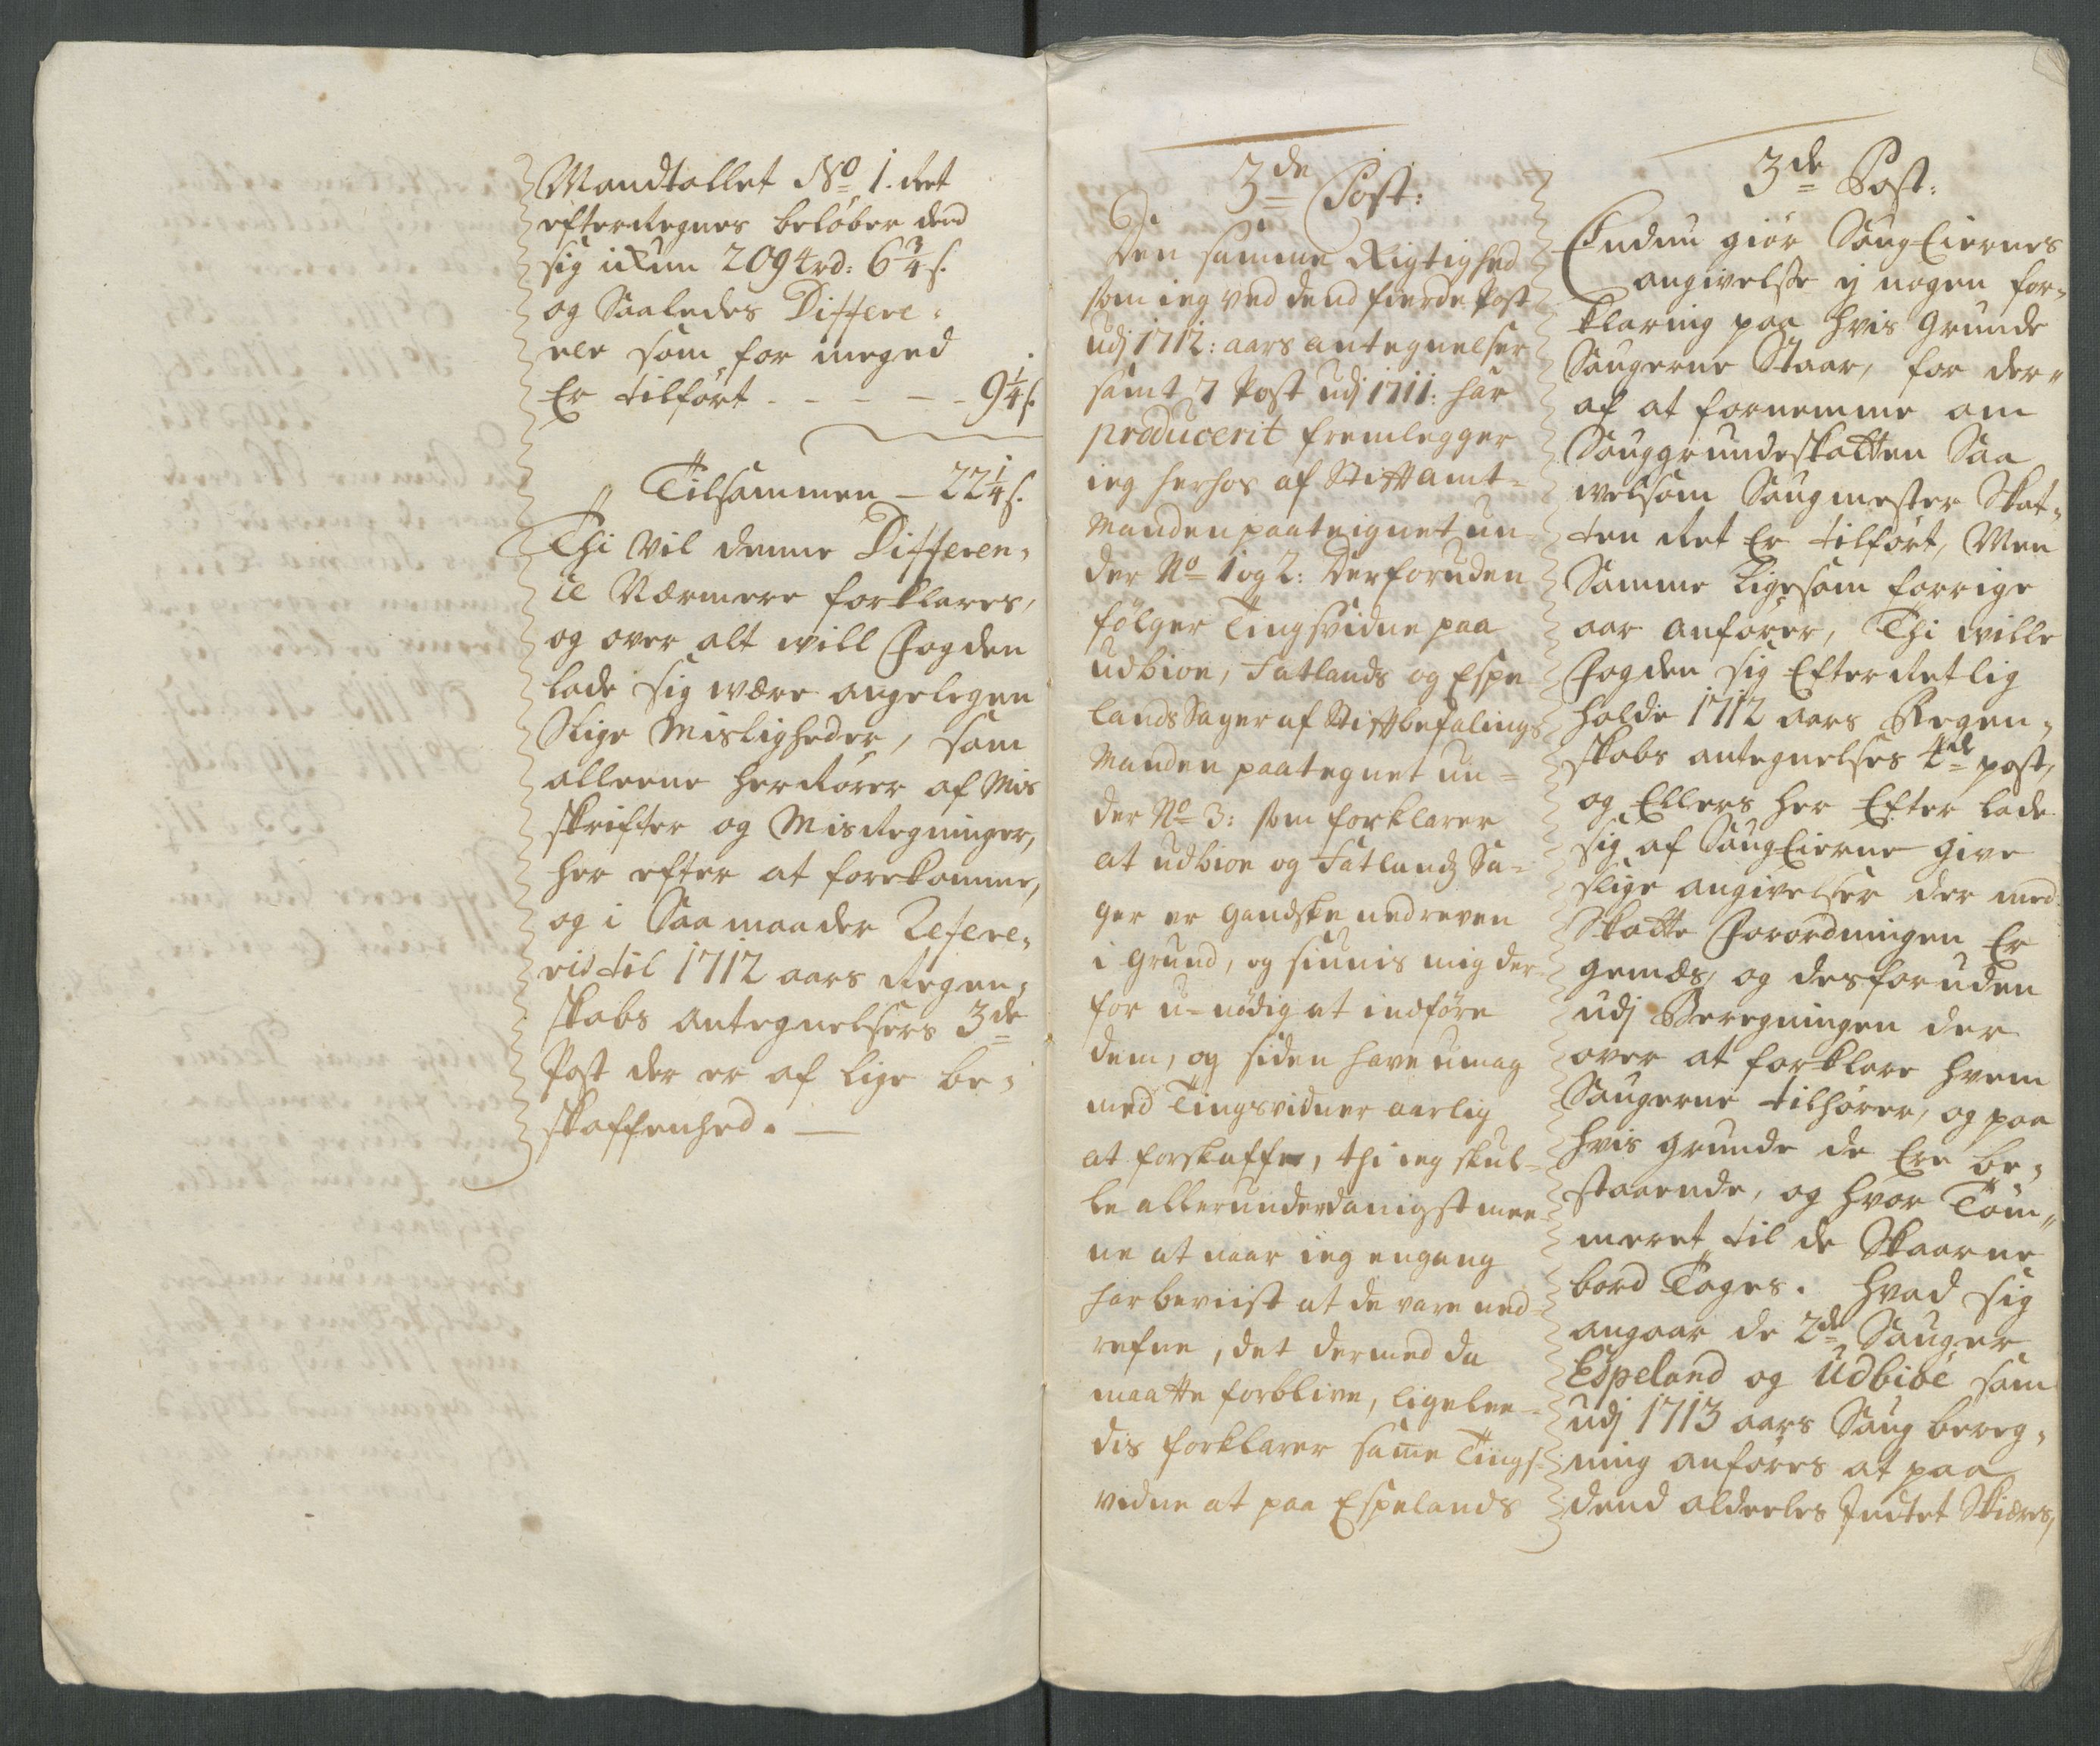 Mandtallet No 1. ret
efterregnes beløber dend
sig ikun 2094 rd: 6 3/4 s.
og Saaledes Differe-
ere som for meged
Er tilført - - - - - 9 1/4 s.
Tilsammen - 22 1/4 s.
Thi vil denne Differen-
ce Nærmere forklares,
og over alt will Fogden
lade sig wære angelegen
Slige Misligheder, som
alleene herrører af Mis
skrifter og Misregninger,
her efter at forekomme,
og i Saa maader Refere-
ris til 1712 aars regen-
skabs antegnelsers 3de
Post der er af lige be-
skaffenhed. -
3de Post:
Den samme Rigtighed
som ieg ved dend fierde Post
udj 1712: aars antegnelser
samt 7 Post udj 1711: har
producerit fremlegger
ieg herhos af Stiftamt-
Manden paateignet un-
der No 1 og 2: Der foruden
følger Tingsvidne paa
udbioe, Fatlands og Espe
lands Sager af Stiftbefalings
Manden paategnet un-
der No 3: som forklarer
at udbioe og Fatlands Sa-
ger er gandske nedreven
i grund, og siunis mig der-
for u-nødig at indføre
dem, og siden have umag
med Tingsvidner aarlig
at forskaffe, thi ieg skul-
le allerunderdanigst mee-
ne at naar ieg engang
har beviist at de vare ned-
refne, det dermed da
maatte forblive, ligelee-
dis forklarer samme Tings-
vidne at paa Espelands
3de Post:
Endnu giør SaugEiernes
angivelse ej nogen for-
klaring paa hvis Grunde
Saugerne Staar, for der-
af at fornemme om
Sauggrundeskatten Saa
welsom Saugmester Skat-
ten ret Er tilført, Men
Samme Ligesom forrige
aar anfører, Thi wille
Fogden sig Efterretlig
holde 1712 aars Regen-
skabs antegnelses 4de post,
og Ellers her Efter lade
sig af SaugEierne give
slige angivelser der med
Skatte Forordningen Er
gemæs, og desforuden
udj Beregningen der
over at forklare hvem
Saugerne tilhører, og paa
hvis grunde de Ere be-
staaende, og hvor Tøm-
meret til de Skaarne
bord Tages. Hvad sig
angaar de 2de Sauger
Espeland og Udbioe som
udj 1713 aars Saug bereg-
ning anføres at paa
dend alderles Indtet Skiæres,